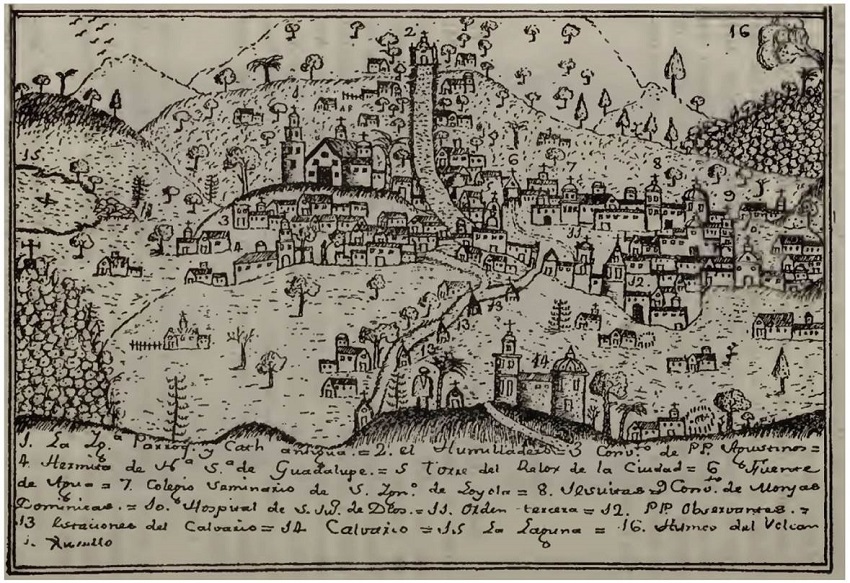 2
16
6
7
8
9
15
3
11
4
12
13
13
14
1. La Yg.ª Parroq. y Cath antigua. = 2. el Humilladero = 3 Conv.º de PP. Agustinos =
4. Hermita de Nª Sª de Guadalupe. = 5 Torre del Relox de la Ciudad = 6 Fuente
de Agua = 7. Colegio Seminario de S. Ign.º de Loyola = 8. Jesuitas 9 Conv.to de Monjas
Dominicas. = 10. Hospital de S. Ju. de Dios. = 11. Orden tercera = 12. PP. Observantes. =
13 Estaciones del Calvario = 14 Calvario = 15 La Laguna = 16. Humeo del Volcan